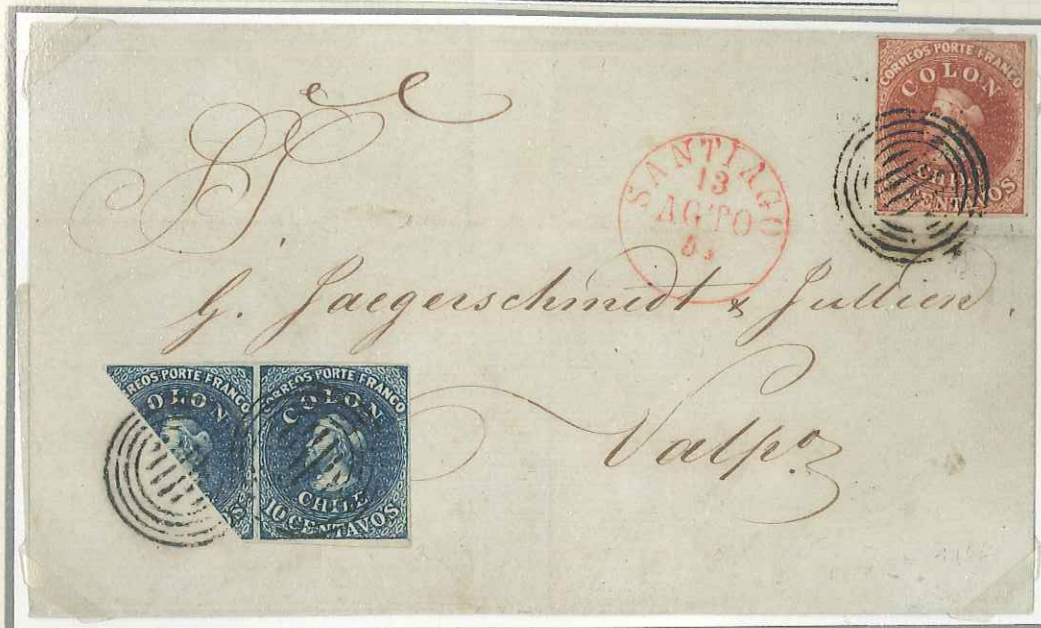 CORREOS PORTE FRANCO
COLON
CHILE
CENTAVOS
SANTIAGO
13
AGTO
Sres
G. Jaegerschmidt & Jullien.
Valpo
REOS PORTE FRANCO
OLON
CORREOS PORTE FRANCO
COLON
CHILE
10 CENTAVOS